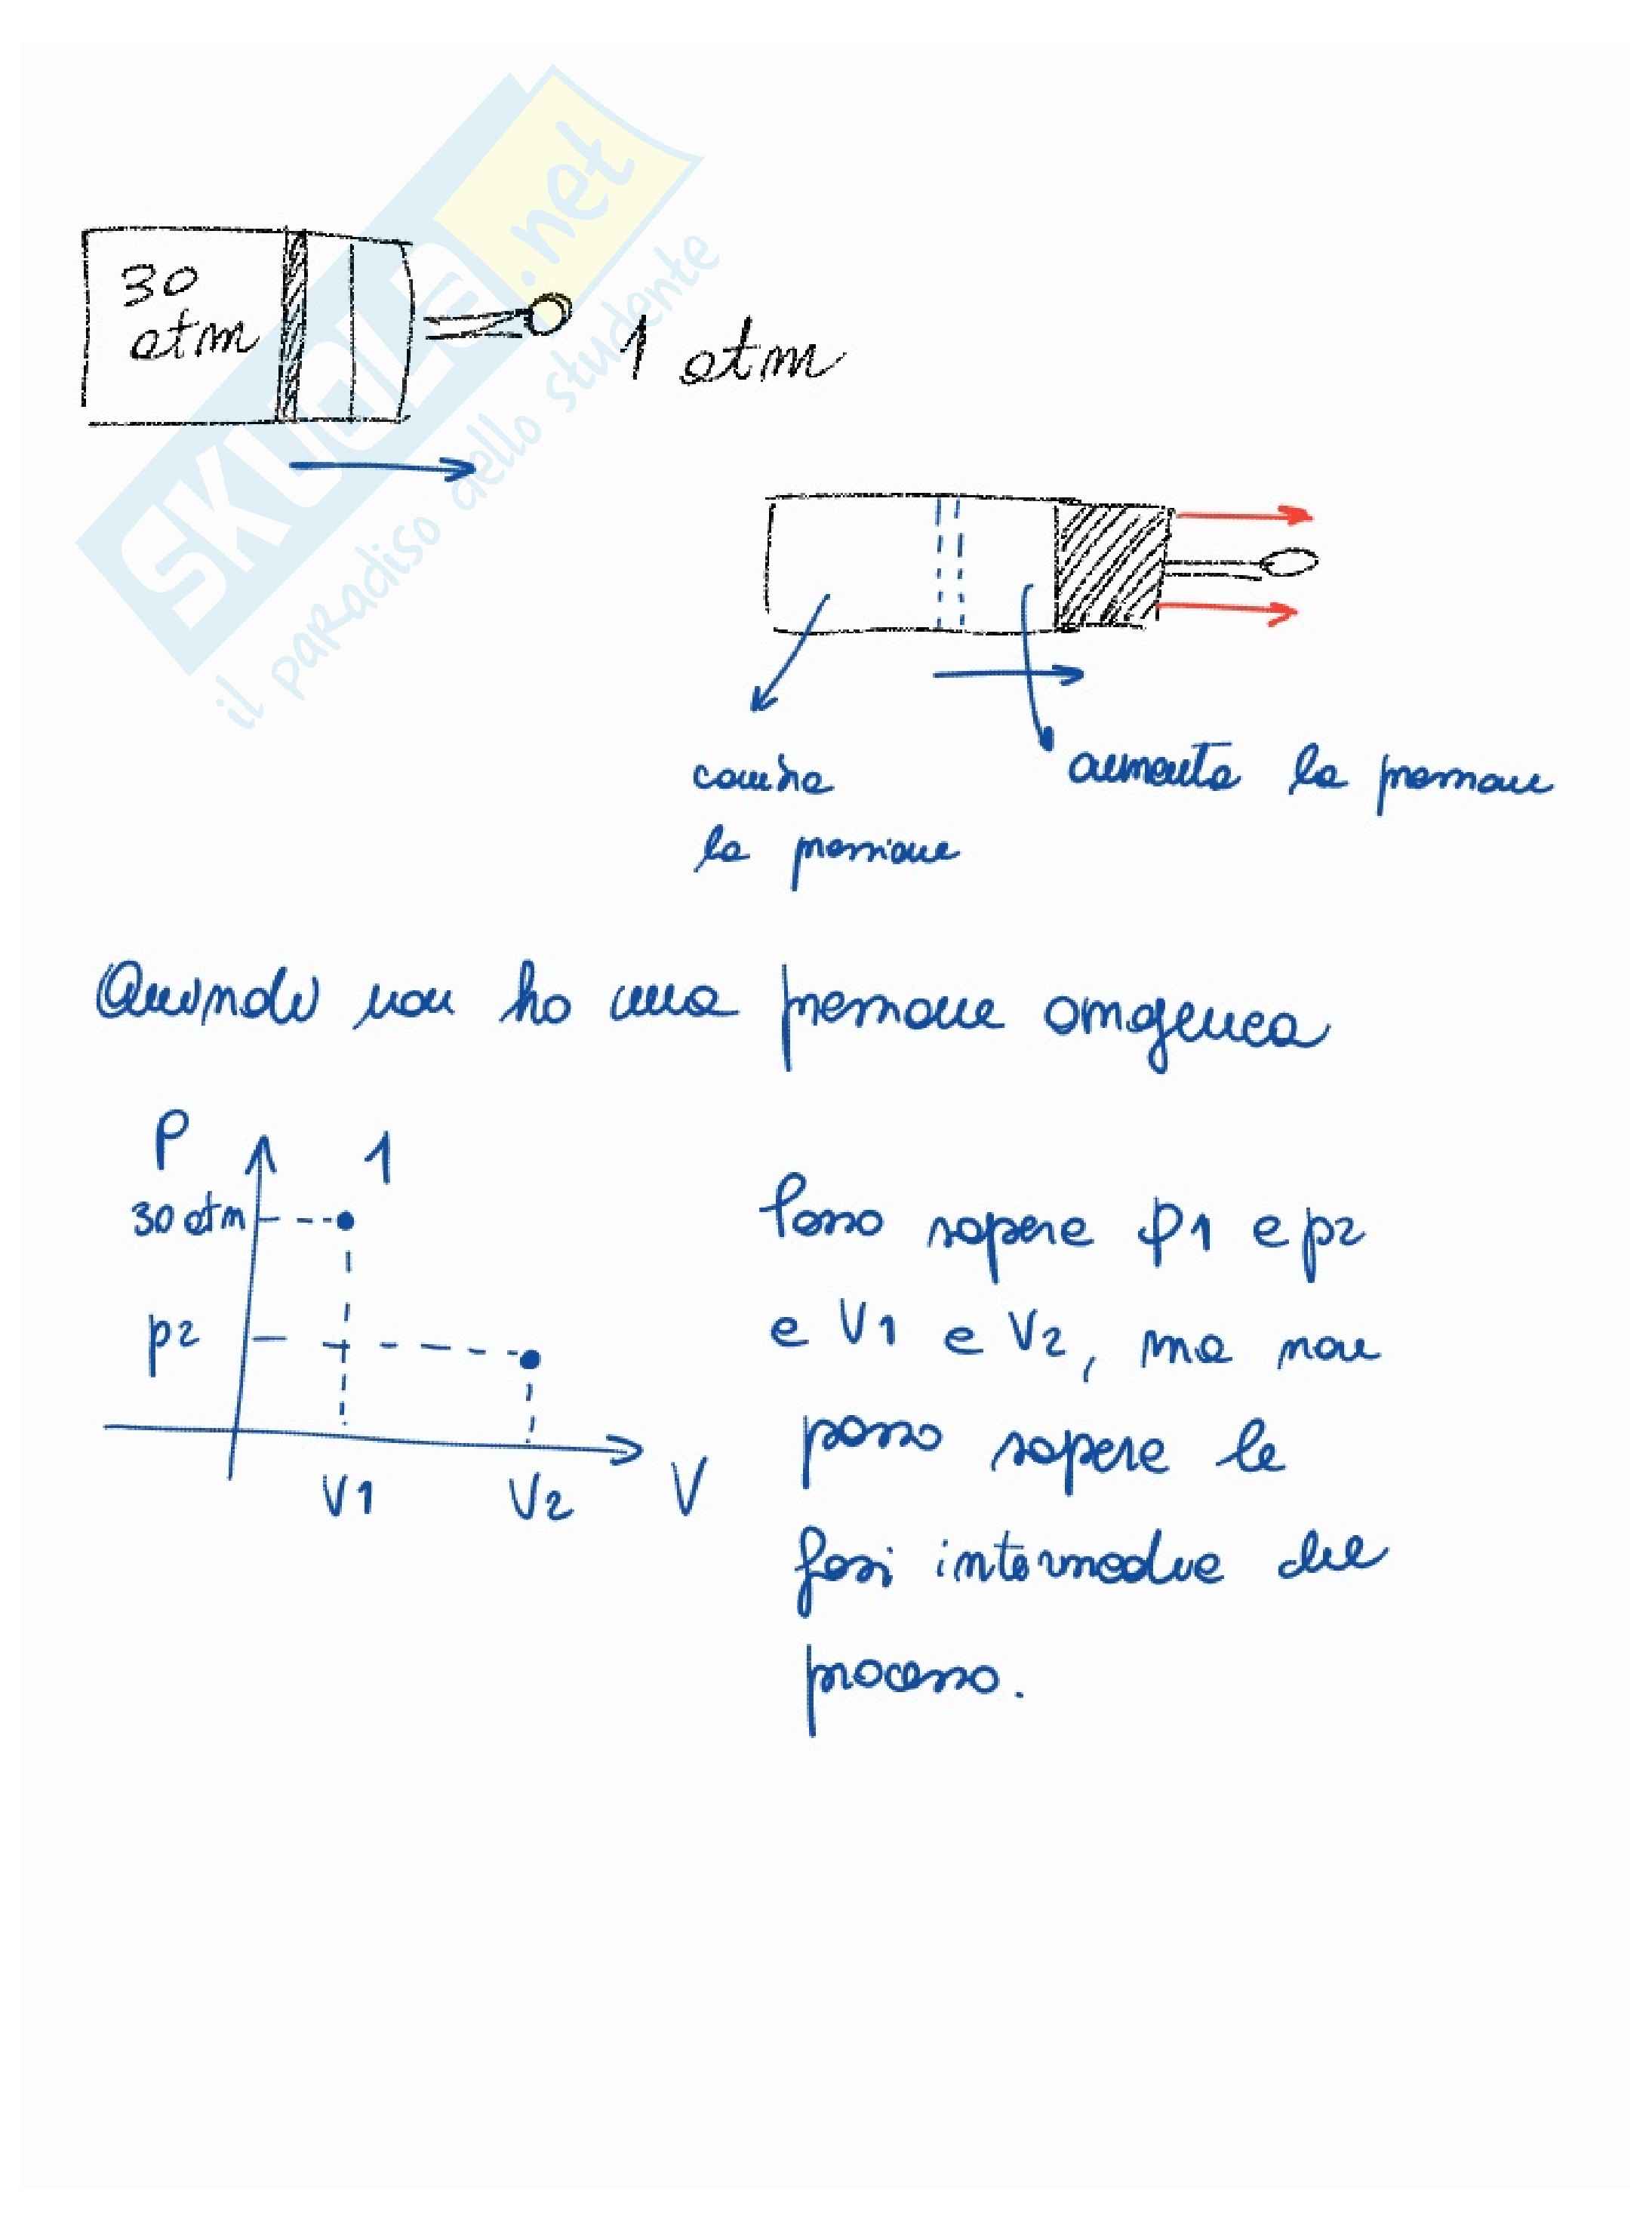 SKUOLA.net
il paradiso dello studente
30
atm
1 atm
cambia
la pressione
aumenta la pressione
Quando non ho una pressione omogenea
P
1
30 atm
p2
V1
V2
V
Posso sapere p1 e p2
e V1 e V2, ma non
posso sapere le
fasi intermedie del
processo.